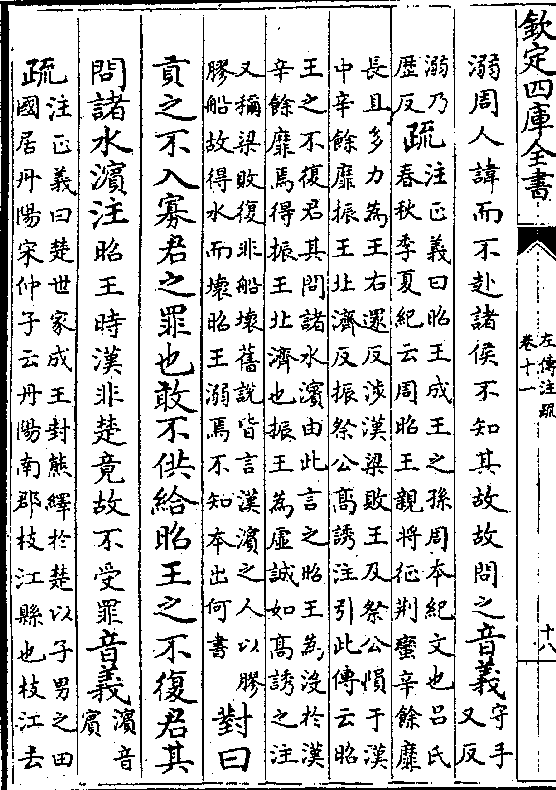 欽定四庫全書
左傳注疏
卷十一
十八
溺周人諱而不赴諸侯不知其故故問之音義守手
又反
溺乃
歷反
疏
注正義曰昭王成王之孫周本紀文也呂氏
春秋季夏紀云周昭王親將征荆蠻辛餘靡
長且多力為王右還反涉漢梁敗王及祭公愪于漢
中辛餘靡振王北濟反振祭公髙誘注引此傳云昭
王之不復君其問諸水濵由此言之昭王為沒於漢
辛餘靡焉得振王北濟也振王為虛誠如髙誘之注
又稱梁敗復非船壞舊說皆言漢濵之人以膠
膠船故得水而壞昭王溺焉不知本出何書
對曰
貢之不入寡君之罪也敢不供給昭王之不復君其
問諸水濵注昭王時漢非楚竟故不受罪音義濵音
賓
疏
注正義曰楚世家成王封熊繹於楚以子男之田
國居丹陽宋仲子云丹陽南郡枝江縣也枝江去